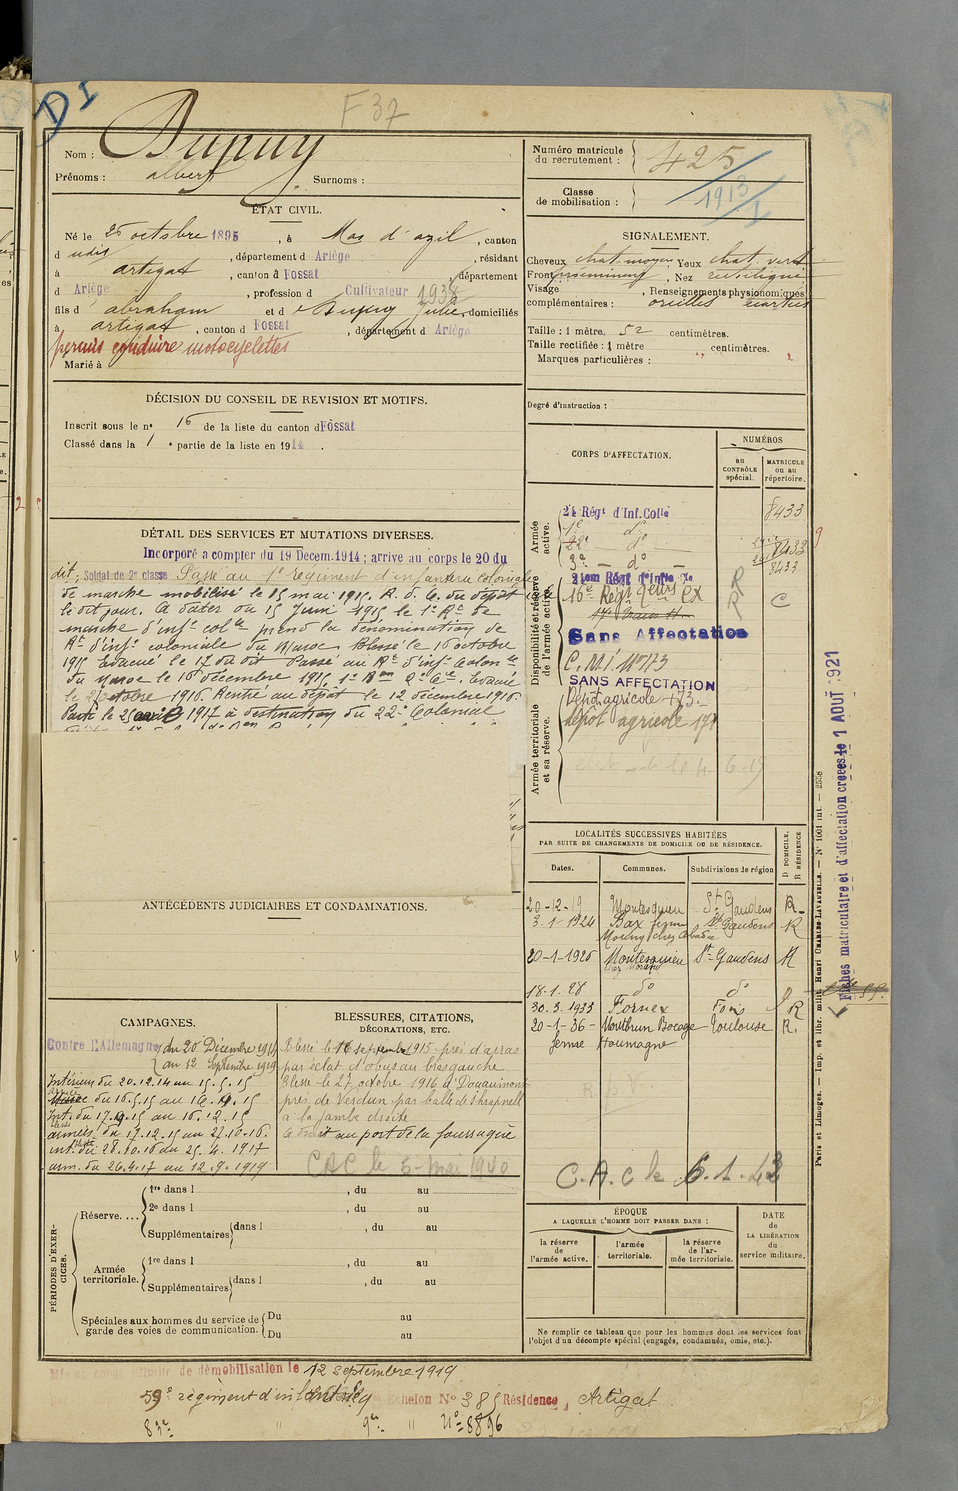 DI
F 37
Nom : Dupuy
Prénoms : albert Surnoms :
ÉTAT CIVIL.
Né le 25 octobre 1895, à Mas d'azil, canton
d udis, département d Ariège, résidant
à artigat, canton d Fossat, département
d Ariège, profession d Cultivateur 1938
fils d abraham et d e Dupuy Julie, domiciliés
à artigat, canton d Fossat, département d Ariège
permis conduire motocyclettes
Marié à
DÉCISION DU CONSEIL DE REVISION ET MOTIFS.
Inscrit sous le n° 16 de la liste du canton d Fossat
Classé dans la 1 e partie de la liste en 1914.
DÉTAIL DES SERVICES ET MUTATIONS DIVERSES.
Incorporé a compter du 19 Decem. 1914; arrive au corps le 20 du
dit; Soldat de 2e classe Passé au 1e régiment d'infanterie coloniale
de marche mobilisé le 15 mai 1915. R. d. C. du dépôt
le dit jour. A dater du 15 Juin 1915 le 1er Rt de
marche d'infie colle prend la dénomination de
Rt d'infie coloniale du Maroc. Blessé le 16 octobre
1915 Evacué le 17 du dit Passé au Rt d'infie Colonle
du Maroc le 16 décembre 1915, 1er Bon 2e Cie. Evacué
le 27 octobre 1916. Rentré au dépôt le 12 décembre 1916.
Parti le 25 avril 1917 à destination du 22e Colonial
ANTÉCÉDENTS JUDICIAIRES ET CONDAMNATIONS.
CAMPAGNES.
Contre l'Allemagne du 20 Décembre 1914
au 12 Septembre 1919
Intérieur du 20.12.14 au 15.5.15
du 16.5.15 au 16.9.15
Int. du 17.9.15 au 16.12.15
armées du 17.12.15 au 27.10.16.
int. du 28.10.16 au 25.4.1917
arm. du 26.4.17 au 12.9.1919
BLESSURES, CITATIONS,
DÉCORATIONS, ETC.
Blessé le 16 septembre 1915 près d'arras
par éclat d'obus au bras gauche
Blessé le 27 octobre 1916 à Douaumont
près de Verdun par balle de Shrapnell
à la jambe droite
a droit au port de la fourragère
CAC le 5 - mai 1940
PÉRIODES D'EXERCICES.
Réserve....
1re dans l , du au
2e dans l , du au
Supplémentaires dans l , du au
Armée territoriale.
1re dans l , du au
Supplémentaires dans l , du au
Spéciales aux hommes du service de garde des voies de communication.
Du au
Du au
Numéro matricule du recrutement : 425
Classe de mobilisation : 1913
SIGNALEMENT.
Cheveux chat. moyen Yeux chat. vert
Front proeminent, Nez rectiligne
Visage , Renseignements physionomiques
complémentaires : oreilles écartées
Taille : 1 mètre, 52 centimètres.
Taille rectifiée : 1 mètre centimètres.
Marques particulières :
Degré d'instruction :
CORPS D'AFFECTATION.
NUMÉROS
au CONTRÔLE spécial.
MATRICULE ou au répertoire.
Armée active.
24 Régt d'Inf. Colle 8433
1e do
22e do
3e — do — 8433
Disponibilité et réserve de l'armée active.
16e Régt
Sans Affectation
C.M.I. No 173
SANS AFFECTATION
Armée territoriale et sa réserve.
Dépôt agricole 173.-
Dépôt agricole 171
R
R
C
LOCALITÉS SUCCESSIVES HABITÉES
PAR SUITE DE CHANGEMENTS DE DOMICILE OU DE RÉSIDENCE.
Dates. Communes. Subdivisions de région D DOMICILE. R RÉSIDENCE
20-12-19 Montesquieu St Gaudens R.
3-1-1924 Bax ferme St Gaudens R
20-1-1926 Montesquieu St-Gaudens R
18.1.28 do do
30.3.1933 Fornex Foix R
20-1-36 - Montbrun Bocage Toulouse R.
ferme Houmagne
C.A.c le 6.1.43
ÉPOQUE
A LAQUELLE L'HOMME DOIT PASSER DANS :
la réserve de l'armée active.
l'armée territoriale.
la réserve de l'armée territoriale.
DATE de LA LIBÉRATION du service militaire.
Ne remplir ce tableau que pour les hommes dont les services font
l'objet d'un décompte spécial (engagés, condamnés, omis, etc.).
Paris et Limoges. — Imp. et libr. milit. Henri CHARLES-LAVAUZELLE. — N° 1001 int. — 2538
Fiches matriculaire et d'affectation créées le 1 AOUT 1921
de démobilisation le 12 septembre 1919
59e régiment d'infanterie Echelon No 385 Résidence, Artigat
83e " 9e " No 8896